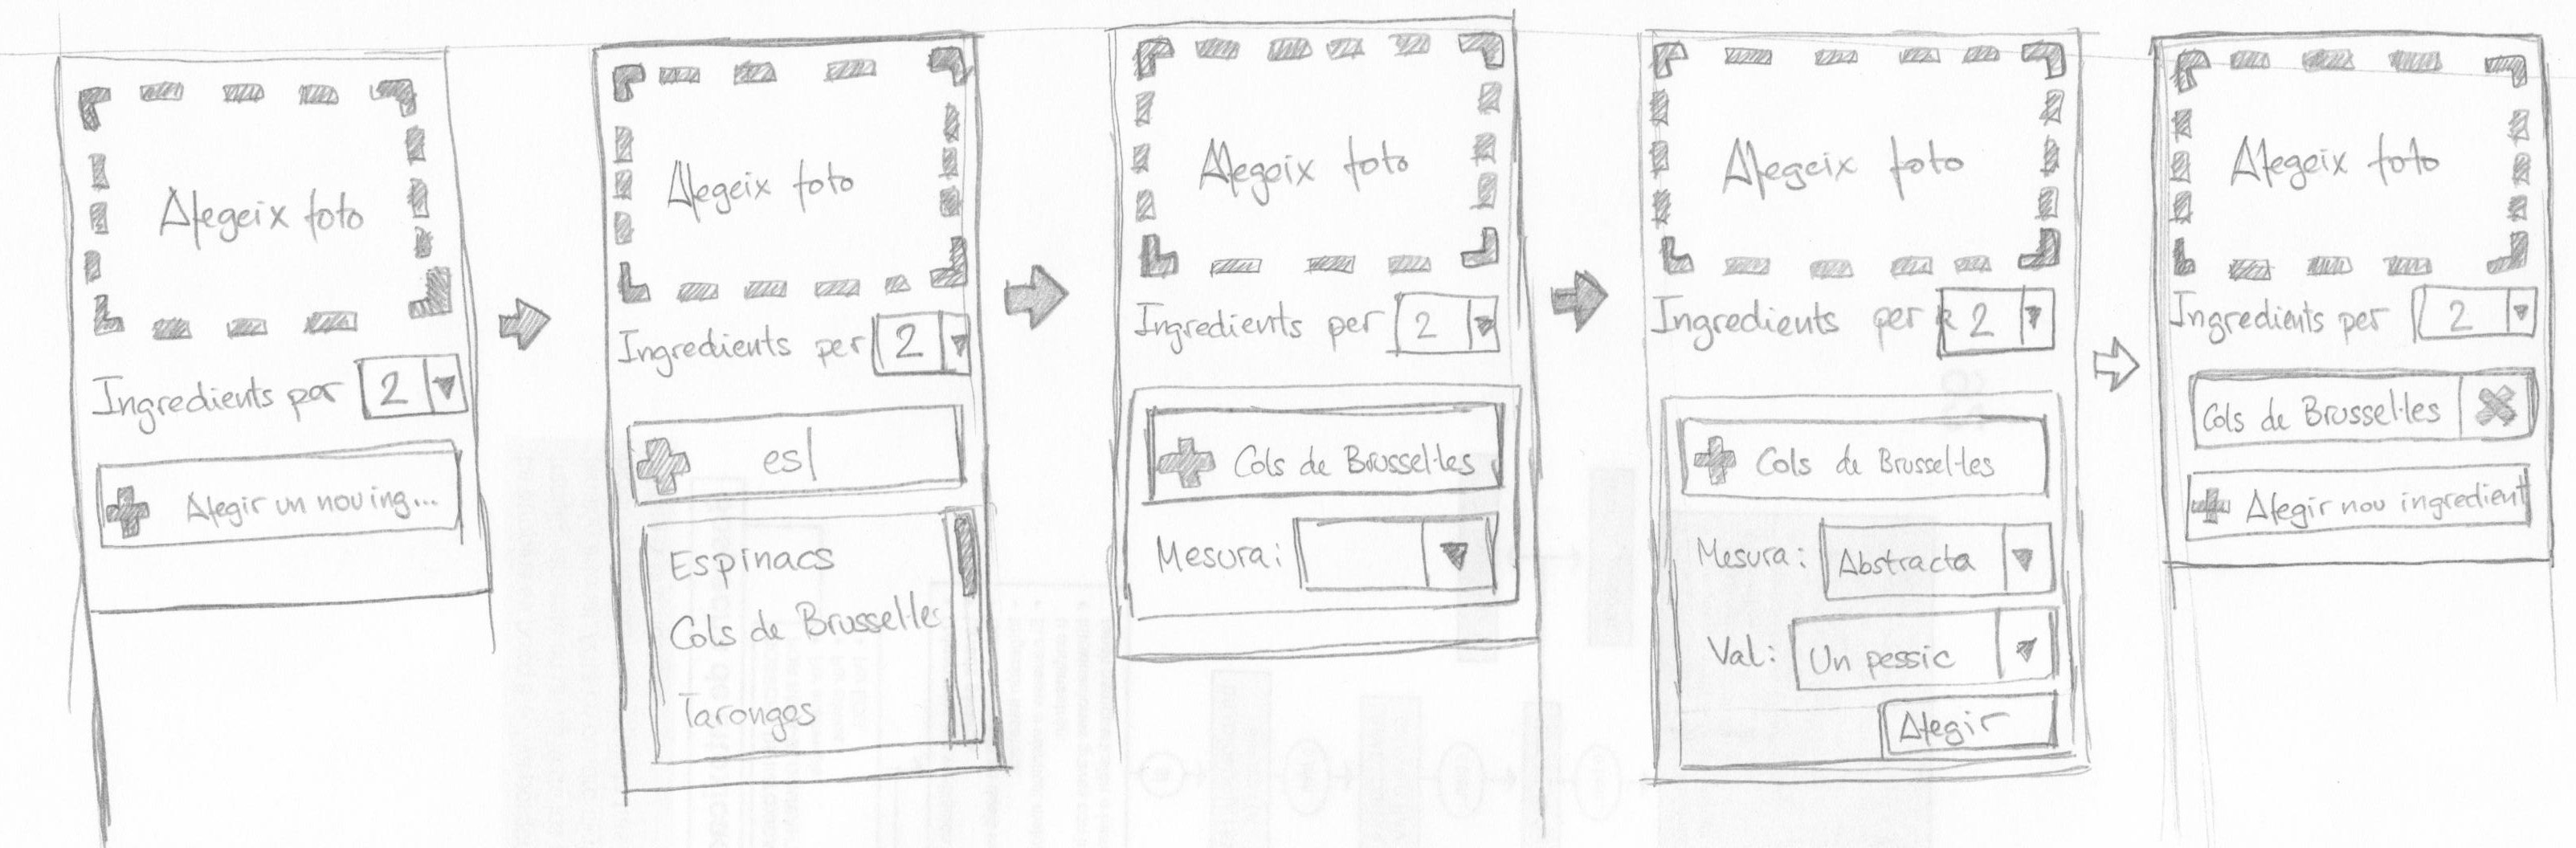 Afegeix foto
Ingredients per 2
Afegir un nou ing...
Afegeix foto
Ingredients per 2
es
Espinacs
Cols de Brussel·les
Taronges
Afegeix foto
Ingredients per 2
Cols de Brussel·les
Mesura:
Afegeix foto
Ingredients per 2
Cols de Brussel·les
Mesura: Abstracta
Val: Un pessic
Afegir
Afegeix foto
Ingredients per 2
Cols de Brussel·les
Afegir nou ingredient